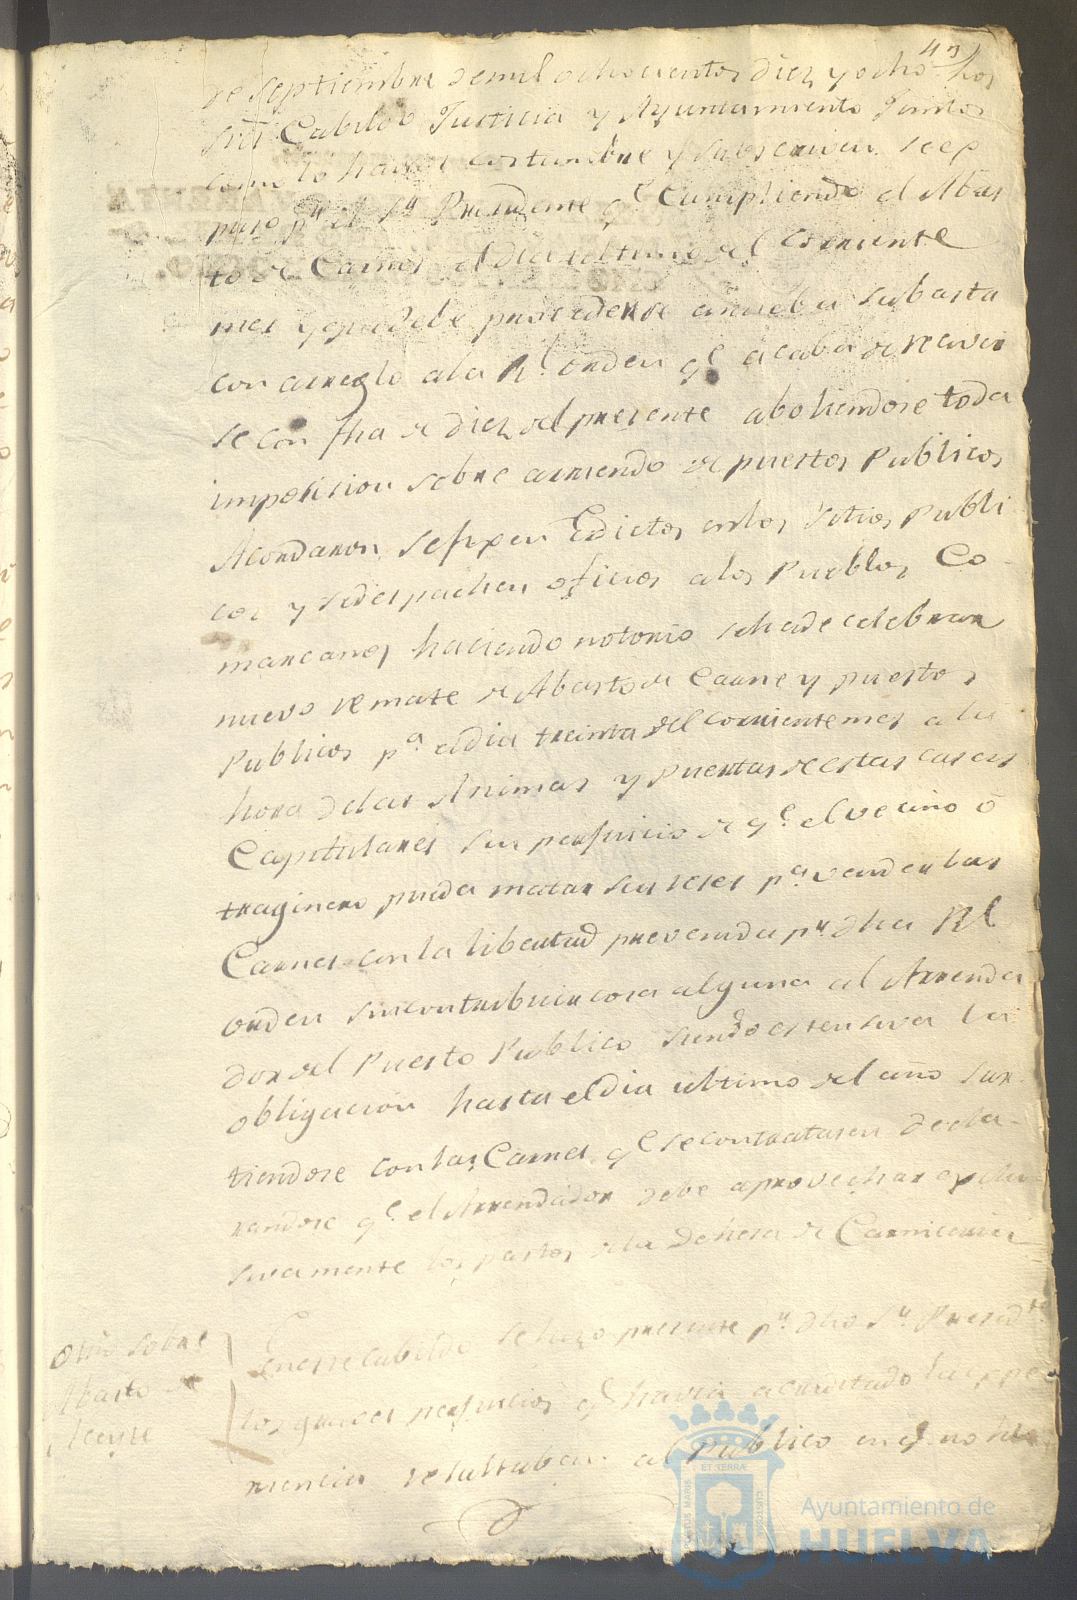 43
de Septiembre de mil ochocientos diez y ocho los
Sres Cabildo Justicia y Ayuntamiento Juntos
como lo han de costumbre y subscriven se ex
puso pr el Sr Presidente qe Cumpliendo el Abas
to de Carnes el dia ultimo del corriente
mes y que debe procederse a nueba subasta
con arreglo a la Rl orden qe acaba de recivir
se con fha de diez del presente aboliendose toda
imposicion sobre arriendo de puestos Publicos
Acordaron se fixen Edictos en los Sitios Publi
cos y se despachen oficios a los Pueblos Co-
marcanos haciendo notorio se ha de celebrar
nuevo remate de Abasto de Carne y puestos
Publicos pa el dia treinta del corriente mes a la
hora de las Animas y puertas de estas casas
Capitulares sin perjuicio de qe el vecino ó
traginero pueda matar sus reses pa vender las
Carnes con la libertad prevenida pr dha Rl
orden sin contribuir cosa alguna al Arrenda
dor del Puesto Publico siendo estensiva la
obligacion hasta el dia ultimo del año sur-
tiendose con las Carnes qe se contratasen decla-
randose qe el Arrendador debe aprovechar exclu
sivamente los pastos de la Dehesa de Carniceria
Otro sobre
Abasto de
Aceyte
En este Cabildo se hizo presente pr dho Sr Presidte
los graves perjuicios qe havia acreditado la expe
riencia resultaban al Publico en qe no ha
PORTUS MARIS
ET TERRÆ
CUSTODIA
Ayuntamiento de
HUELVA